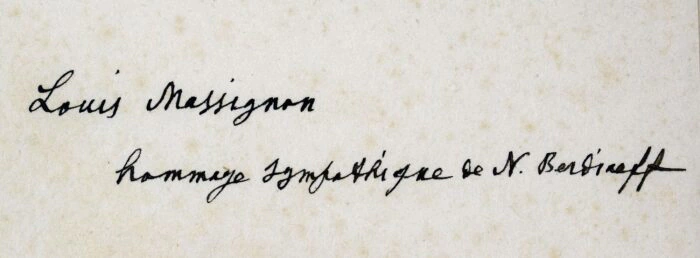 Louis Massignon
hommage sympathique de N. Berdiaeff